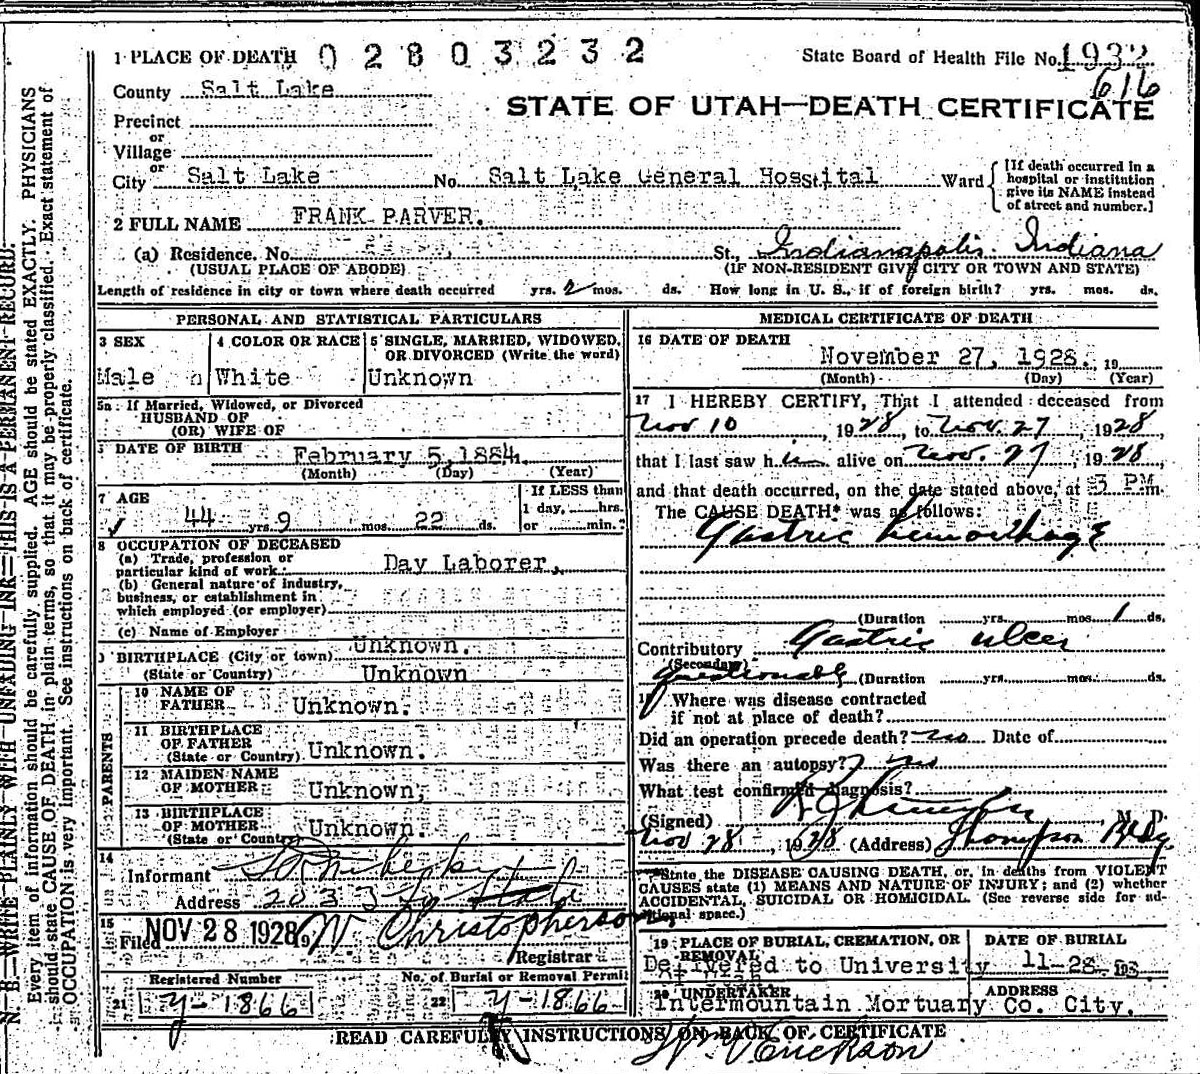 1 PLACE OF DEATH 0 2 8 0 3 2 3 2 State Board of Health File No. 1932
616
County Salt Lake
STATE OF UTAH—DEATH CERTIFICATE
Precinct
or
Village
or
City Salt Lake No. Salt Lake General Hosstital Ward
[If death occurred in a
hospital or institution
give its NAME instead
of street and number.]
2 FULL NAME FRANK PARVER.
(a) Residence. No. St., Indianapolis. Indiana
(USUAL PLACE OF ABODE) (IF NON-RESIDENT GIVE CITY OR TOWN AND STATE)
Length of residence in city or town where death occurred yrs. 2 mos. ds. How long in U. S., if of foreign birth? yrs. mos. ds.
PERSONAL AND STATISTICAL PARTICULARS
3 SEX
Male
4 COLOR OR RACE
White
5 SINGLE, MARRIED, WIDOWED,
OR DIVORCED (Write the word)
Unknown
5a If Married, Widowed, or Divorced
HUSBAND OF
(OR) WIFE OF
DATE OF BIRTH February 5, 1884.
(Month) (Day) (Year)
7 AGE
44 yrs. 9 mos. 22 ds.
If LESS than
1 day, hrs.
or min.?
8 OCCUPATION OF DECEASED
(a) Trade, profession or
particular kind of work Day Laborer,
(b) General nature of industry,
business, or establishment in
which employed (or employer)
(c) Name of Employer
Unknown.
BIRTHPLACE (City or town)
(State or Country) Unknown
PARENTS
10 NAME OF
FATHER Unknown.
11 BIRTHPLACE
OF FATHER
(State or Country) Unknown.
12 MAIDEN NAME
OF MOTHER Unknown,
13 BIRTHPLACE
OF MOTHER Unknown.
(State or Country)
14
Informant
Address
15
Filed NOV 28 1928 19 W Christopherson,
Registrar
Registered Number No. of Burial or Removal Permit
21 y-1866 22 y-1866
MEDICAL CERTIFICATE OF DEATH
16 DATE OF DEATH
November 27, 1928. , 19
(Month) (Day) (Year)
17 I HEREBY CERTIFY, That I attended deceased from
Nov 10 , 1928, to Nov. 27 , 1928
that I last saw him alive on Nov. 27 , 1928
and that death occurred, on the date stated above, at 3 PM m.
The CAUSE DEATH* was as follows:
Gastric hemorrhage
(Duration yrs. mos. 1 ds.
Contributory Gastric ulcer
(Secondary)
questionable (Duration yrs. mos. ds.
Where was disease contracted
if not at place of death?
Did an operation precede death? no Date of
Was there an autopsy? no
What test confirmed diagnosis?
(Signed) M. D.
Nov 28 , 1928 (Address) Thompson Bldg.
*State the DISEASE CAUSING DEATH, or, in deaths from VIOLENT
CAUSES state (1) MEANS AND NATURE OF INJURY; and (2) whether
ACCIDENTAL, SUICIDAL OR HOMICIDAL. (See reverse side for ad-
ditional space.)
19 PLACE OF BURIAL, CREMATION, OR
REMOVAL
Delivered to University
DATE OF BURIAL
11-28-
20 UNDERTAKER ADDRESS
Intermountain Mortuary Co. City.
READ CAREFULLY INSTRUCTIONS ON BACK OF CERTIFICATE
Erickson
N. B.—WRITE PLAINLY WITH UNFADING INK—THIS IS A PERMANENT RECORD.
Every item of information should be carefully supplied. AGE should be stated EXACTLY. PHYSICIANS
should state CAUSE OF DEATH in plain terms, so that it may be properly classified. Exact statement of
OCCUPATION is very important. See instructions on back of certificate.